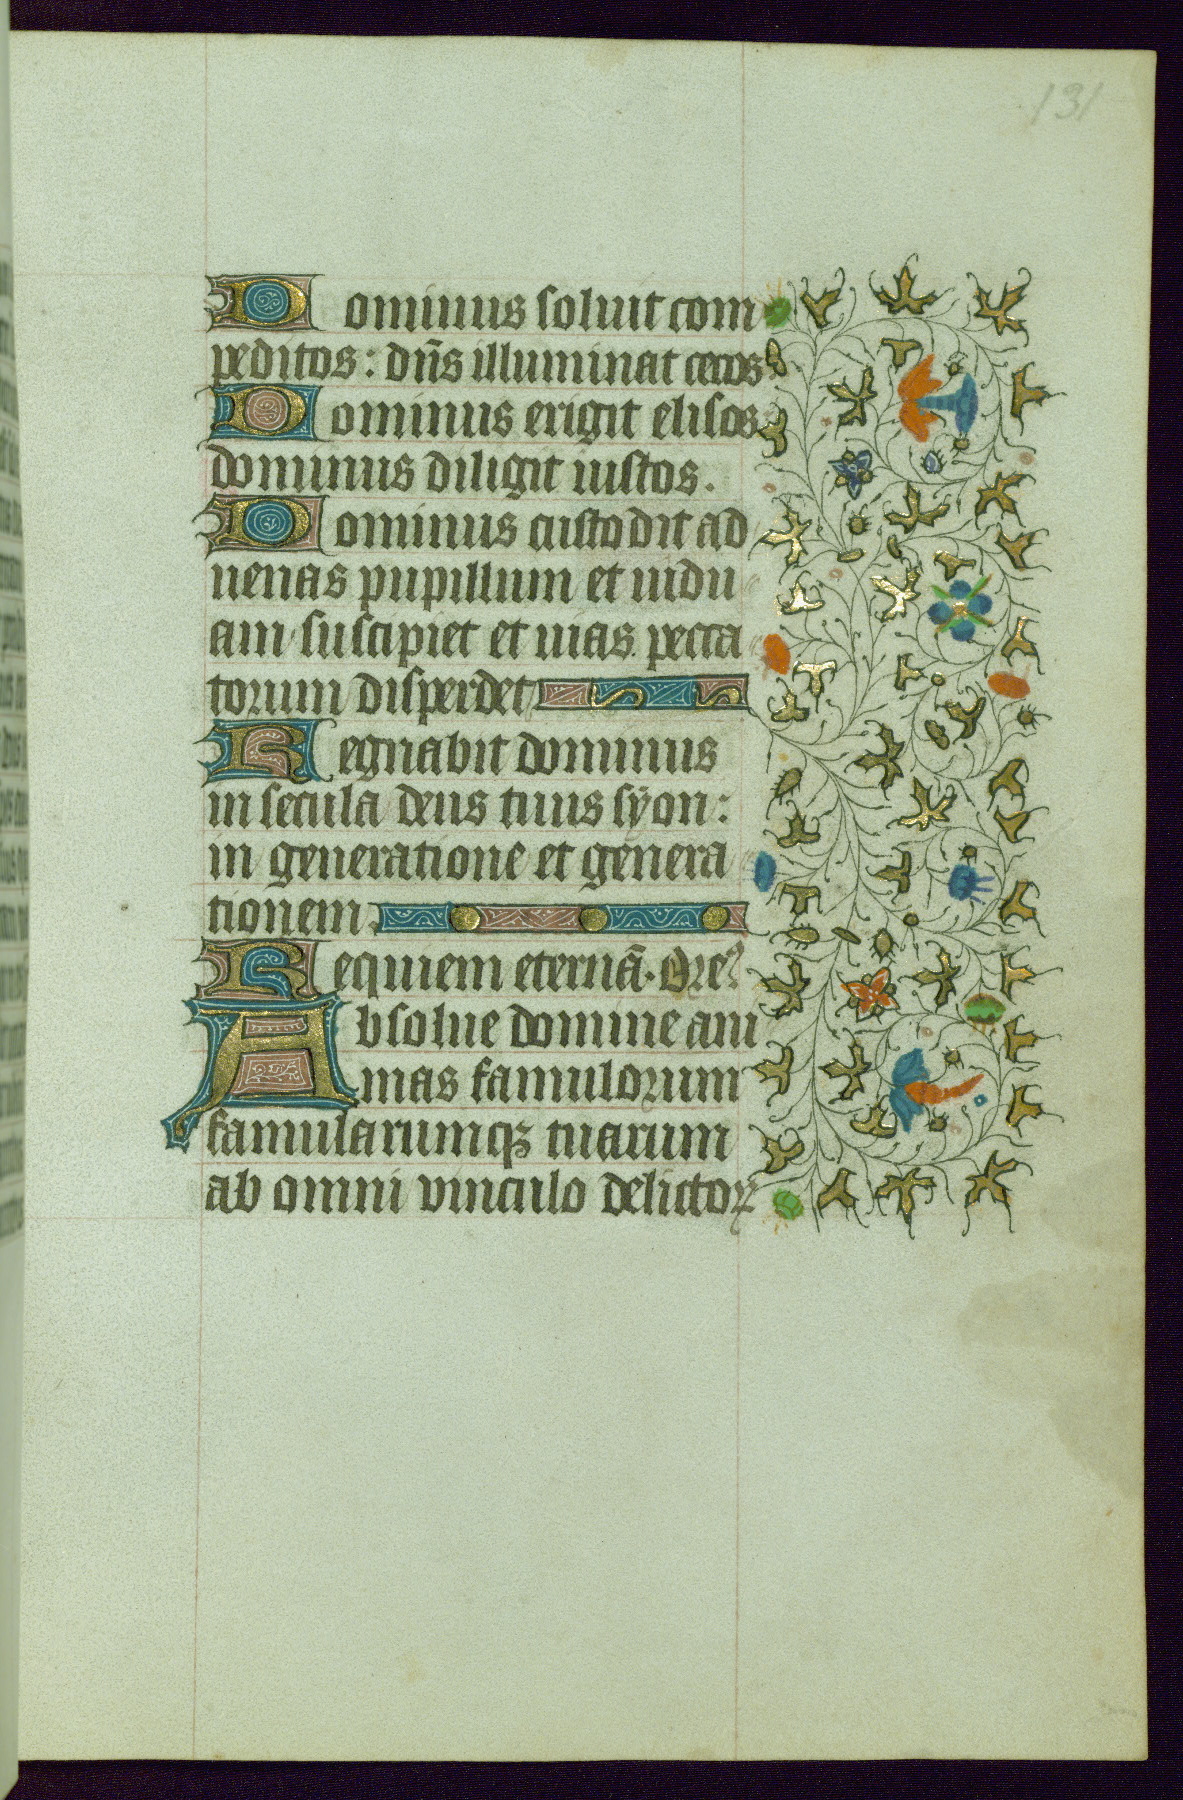 131
Dominus soluit com
peditos: dñs illuminat cecos
Dominus erigit elisos
dominus diligit iustos.
Dominus custodit ad
uenas pupillum et uidu
am suscipiet et uias pecca
torum disperdet
Regnabit dominus
in secula deus tuus syon:
in generatione et genera
tionem.
Requiem eternã. Ore᷒
Absolue domine ani
mas famulorum
famularumqꝫ tuarum
ab omni vinculo delictoꝝ